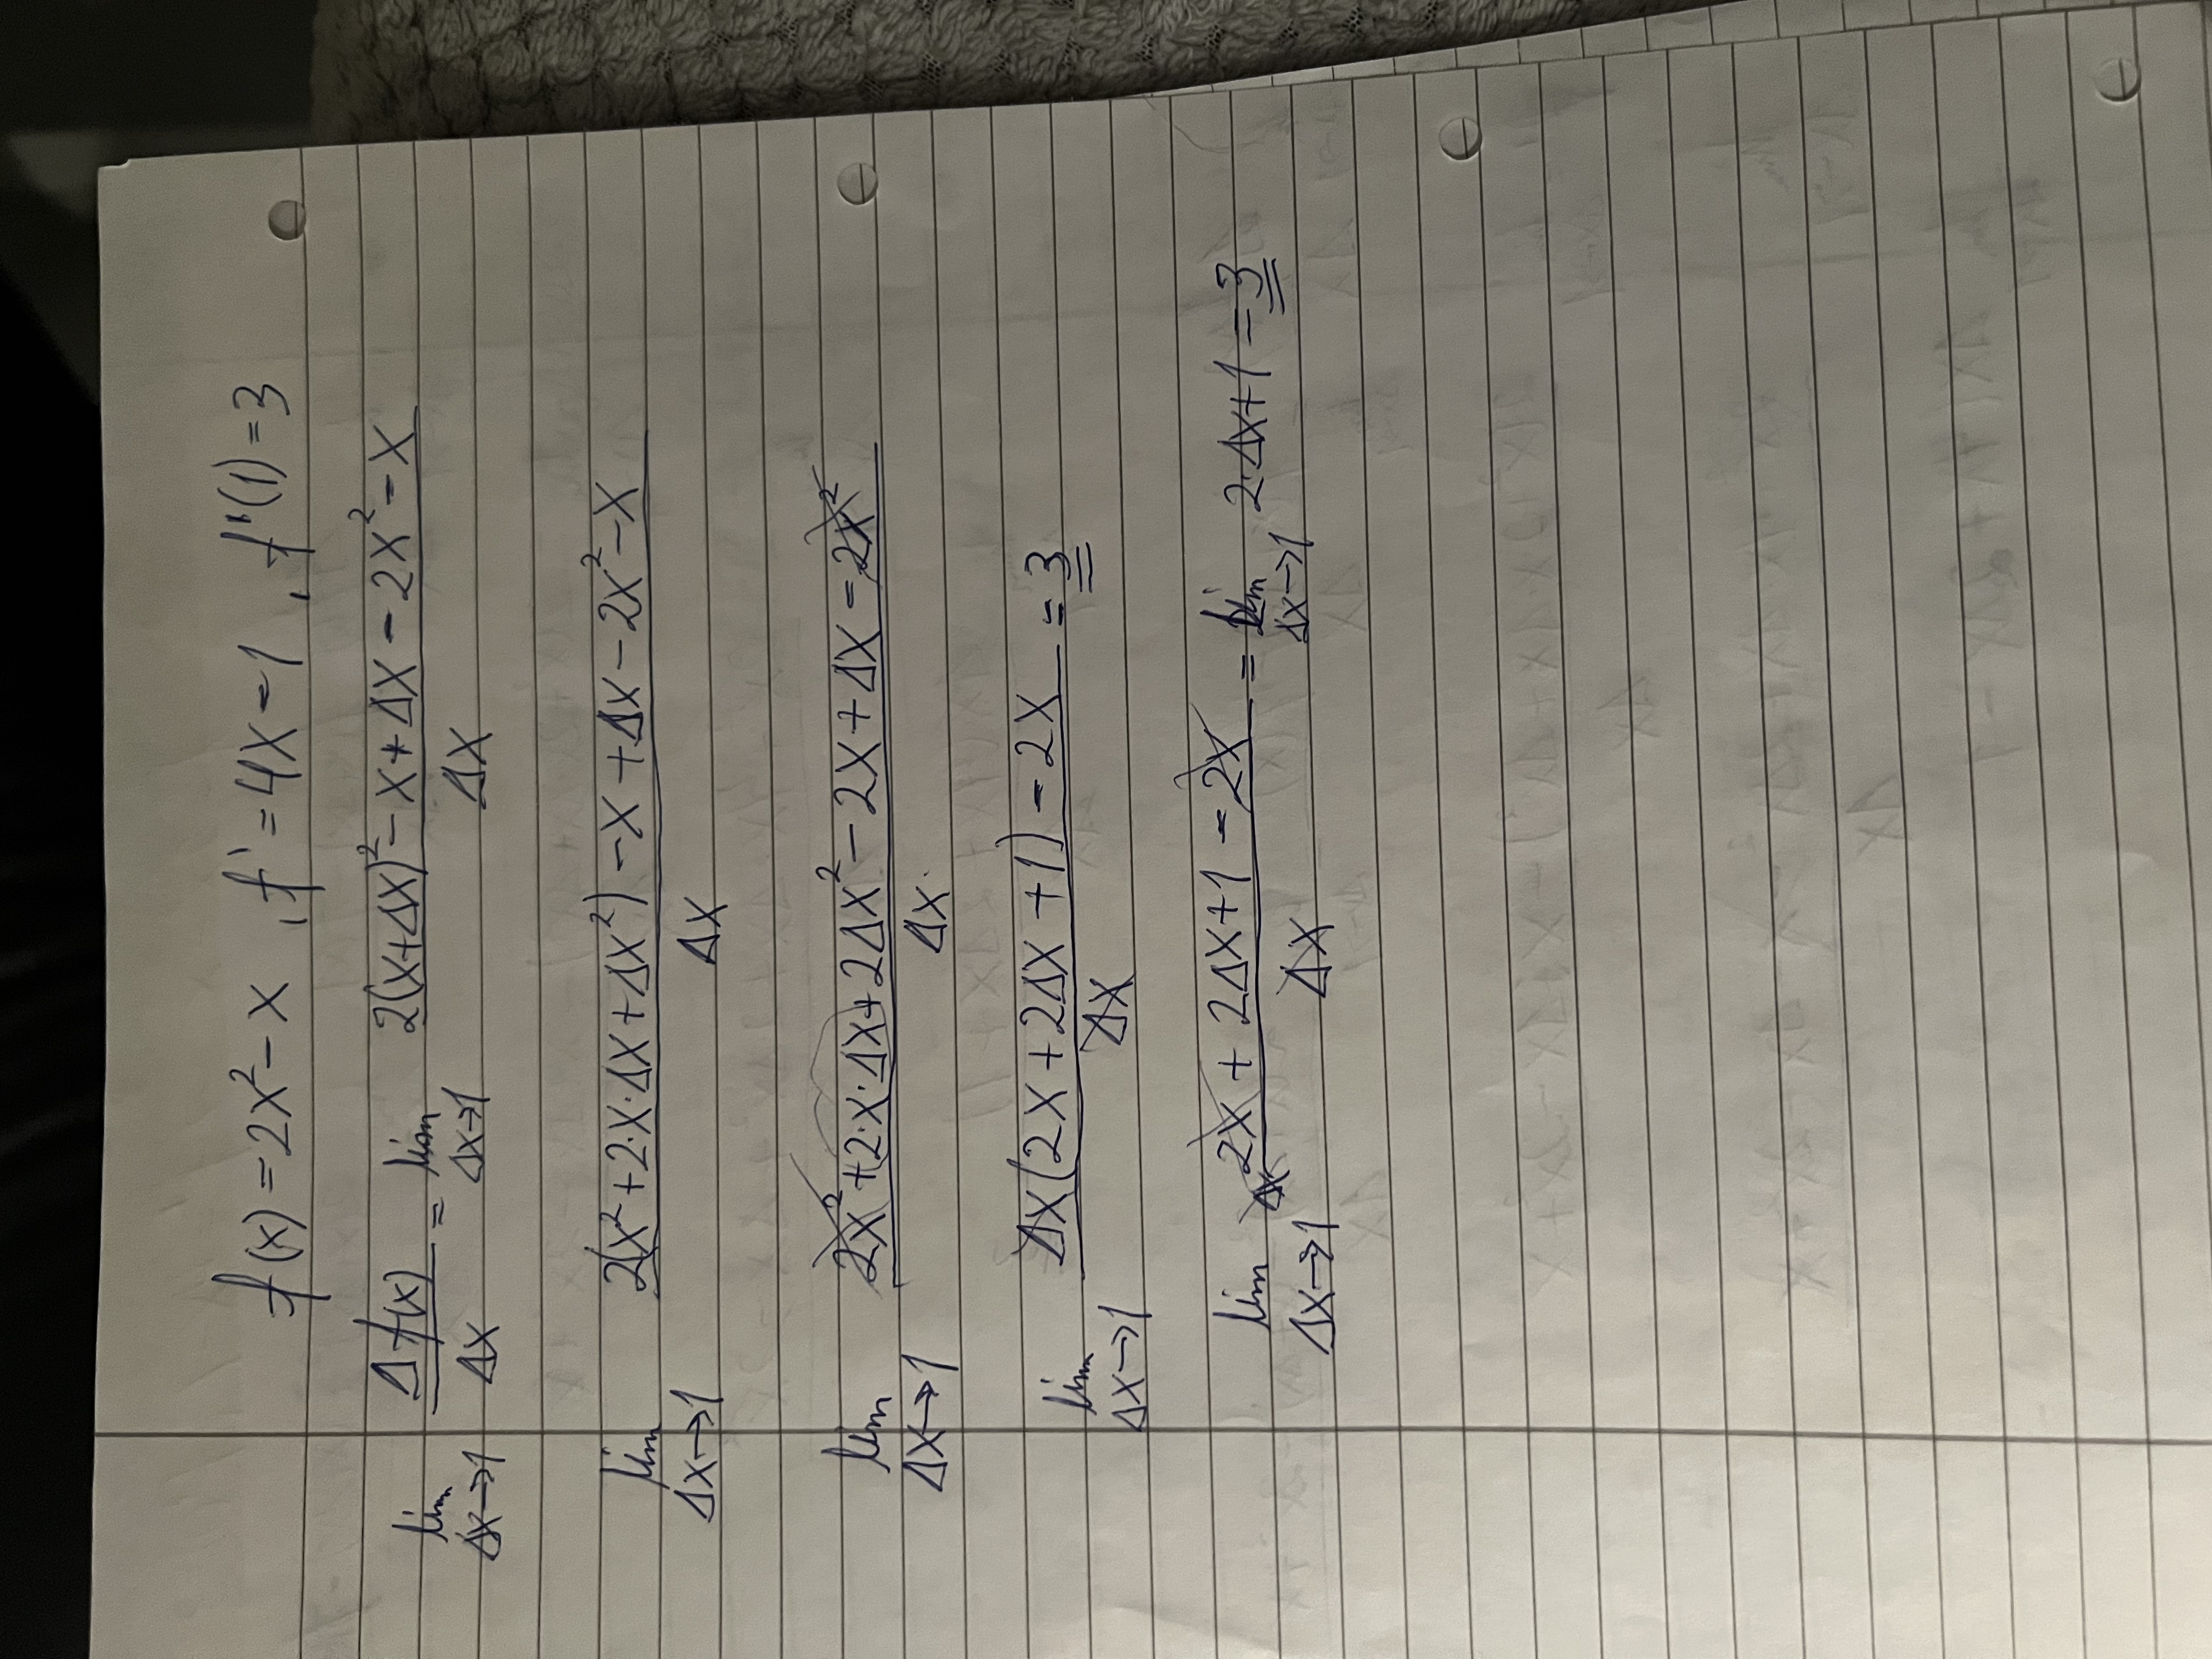 f(x) = 2x² - x , f' = 4x - 1 , f'(1) = 3
lim Δx→1 Δf(x)/Δx = lim Δx→1 (2(x+Δx)² - x + Δx - 2x² - x)/Δx
lim Δx→1 (2(x² + 2·x·Δx + Δx²) - x + Δx - 2x² - x)/Δx
lim Δx→1 (2x² + (2·x·Δx + 2Δx² - 2x + Δx - 2x²)/Δx
lim Δx→1 (Δx(2x + 2Δx + 1) - 2x)/Δx = 3
lim Δx→1 Δx (2x + 2Δx + 1 - 2x)/Δx = lim Δx→1 2·Δx+1 = 3